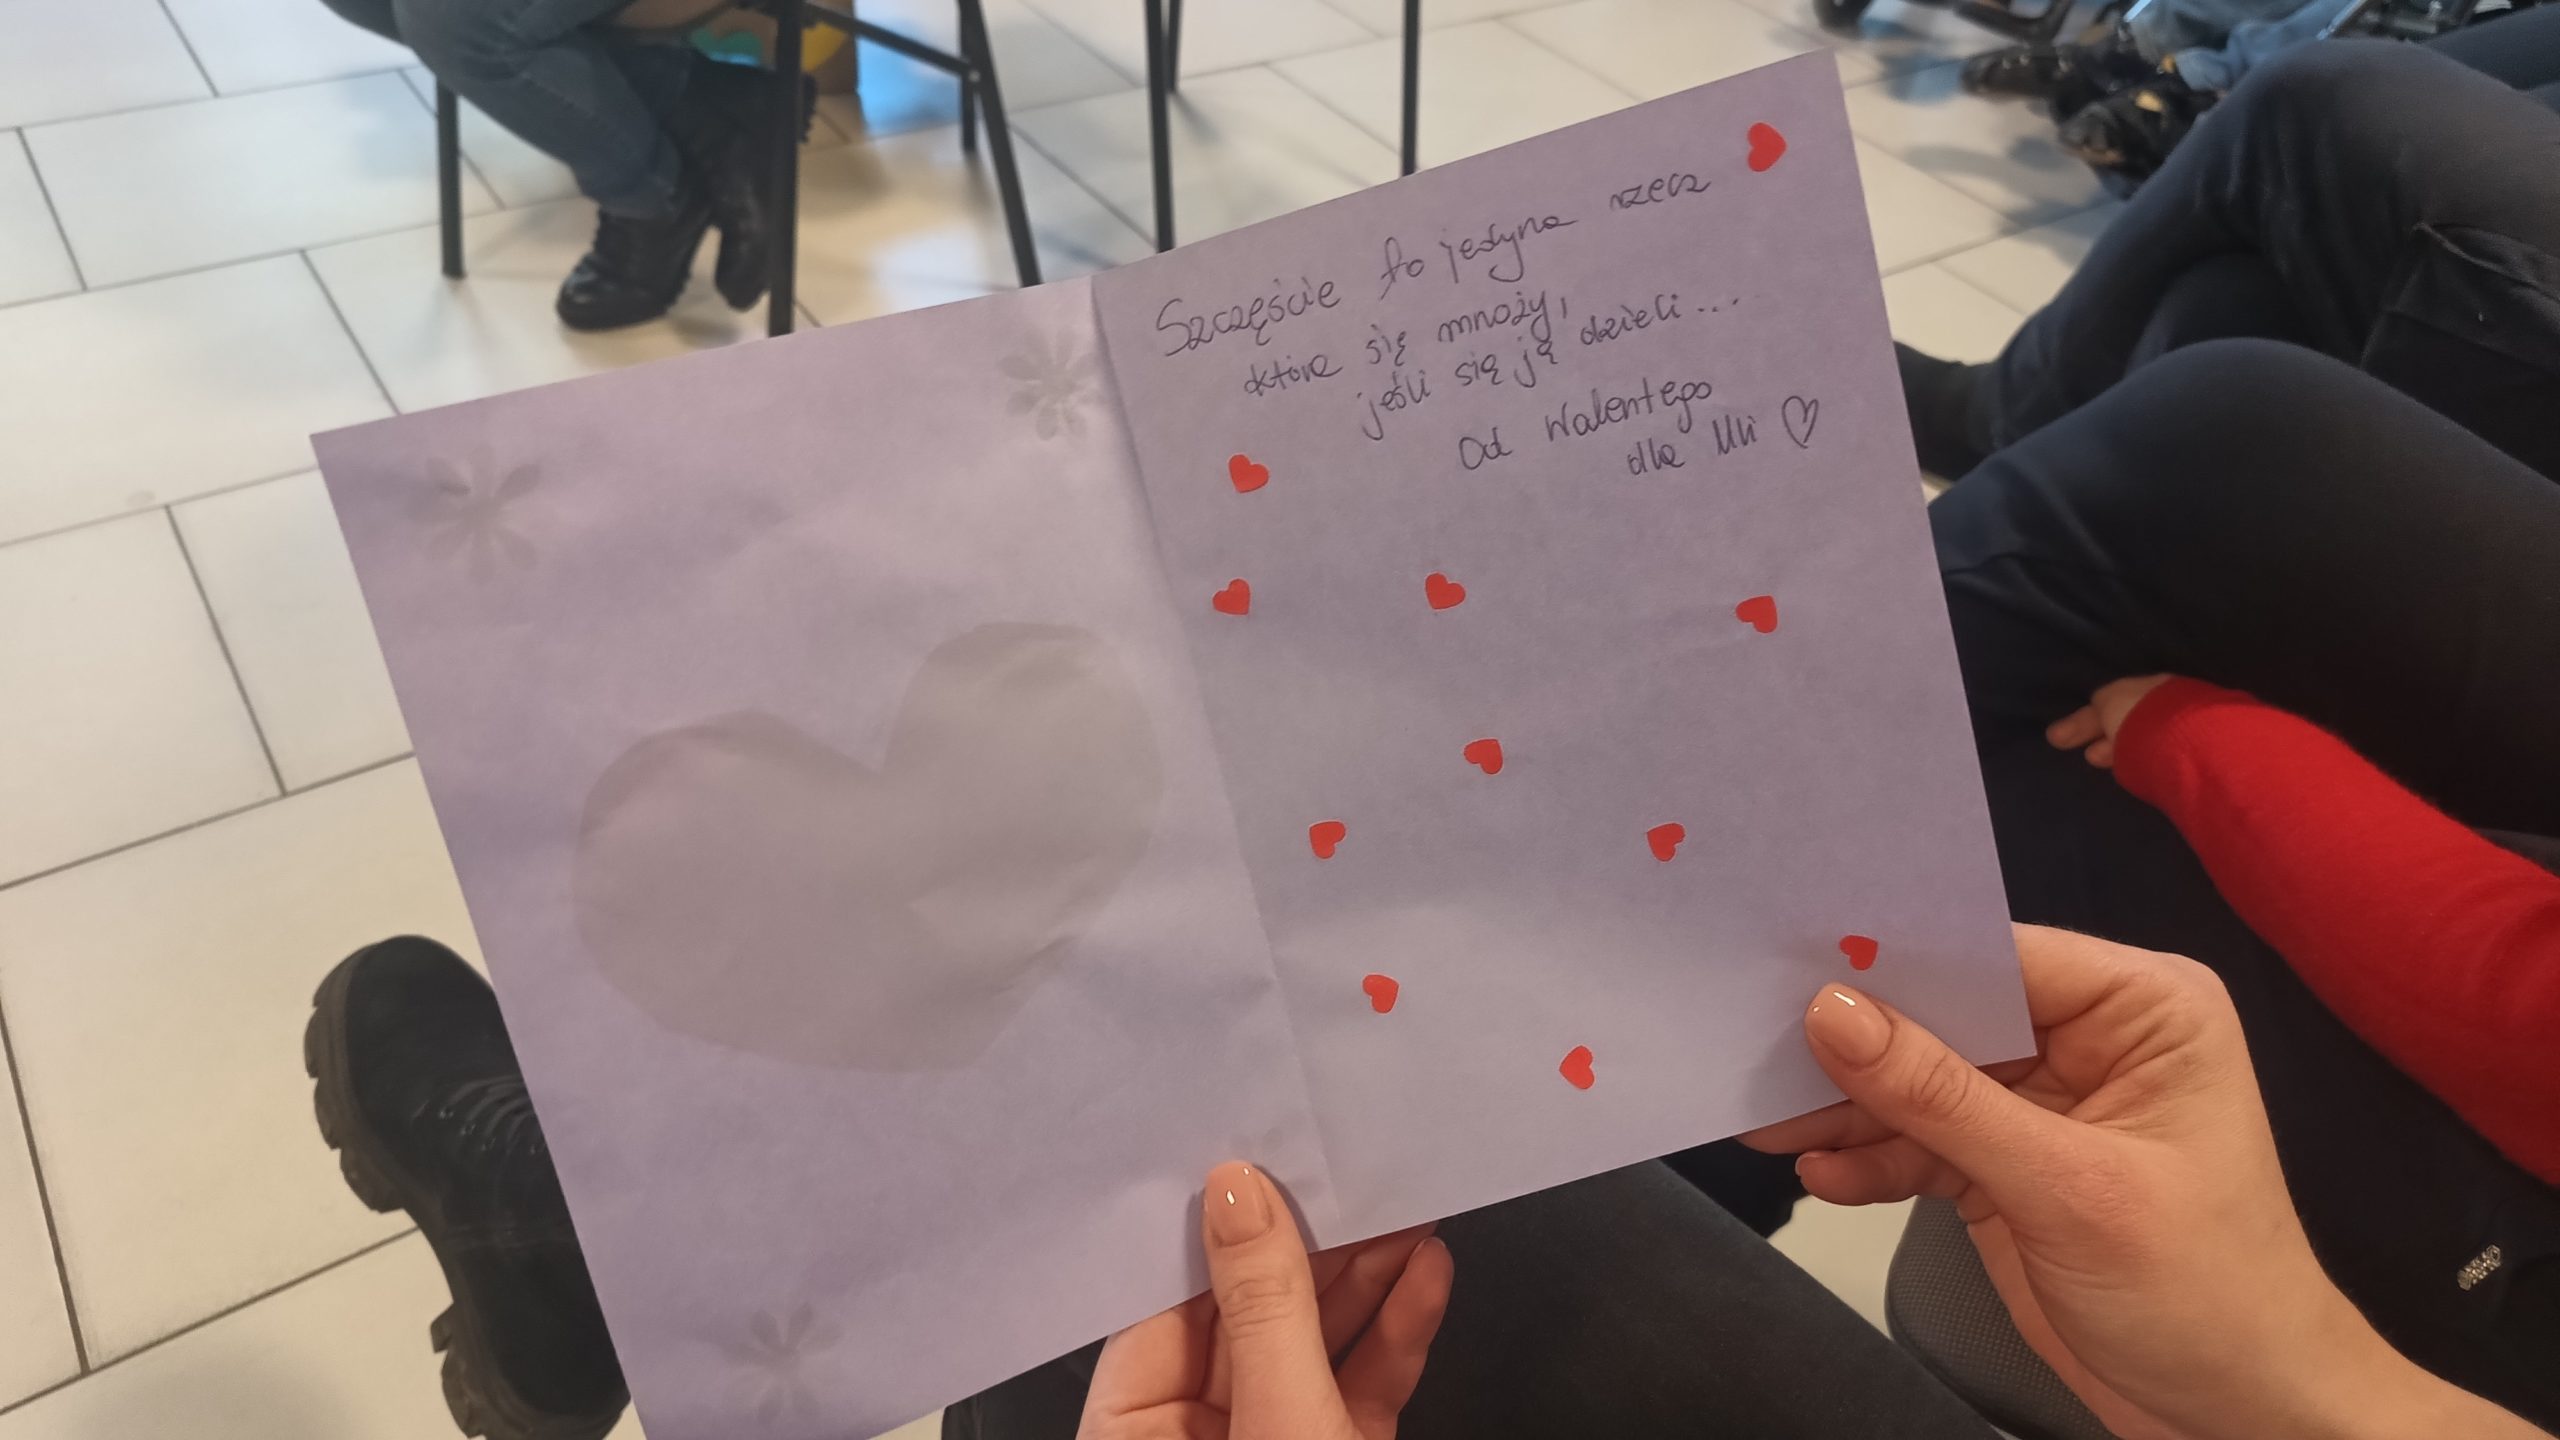 Szczęście to jedyna rzecz
która się mnoży,
jeśli się ją dzieli...
Od Walentego
dla